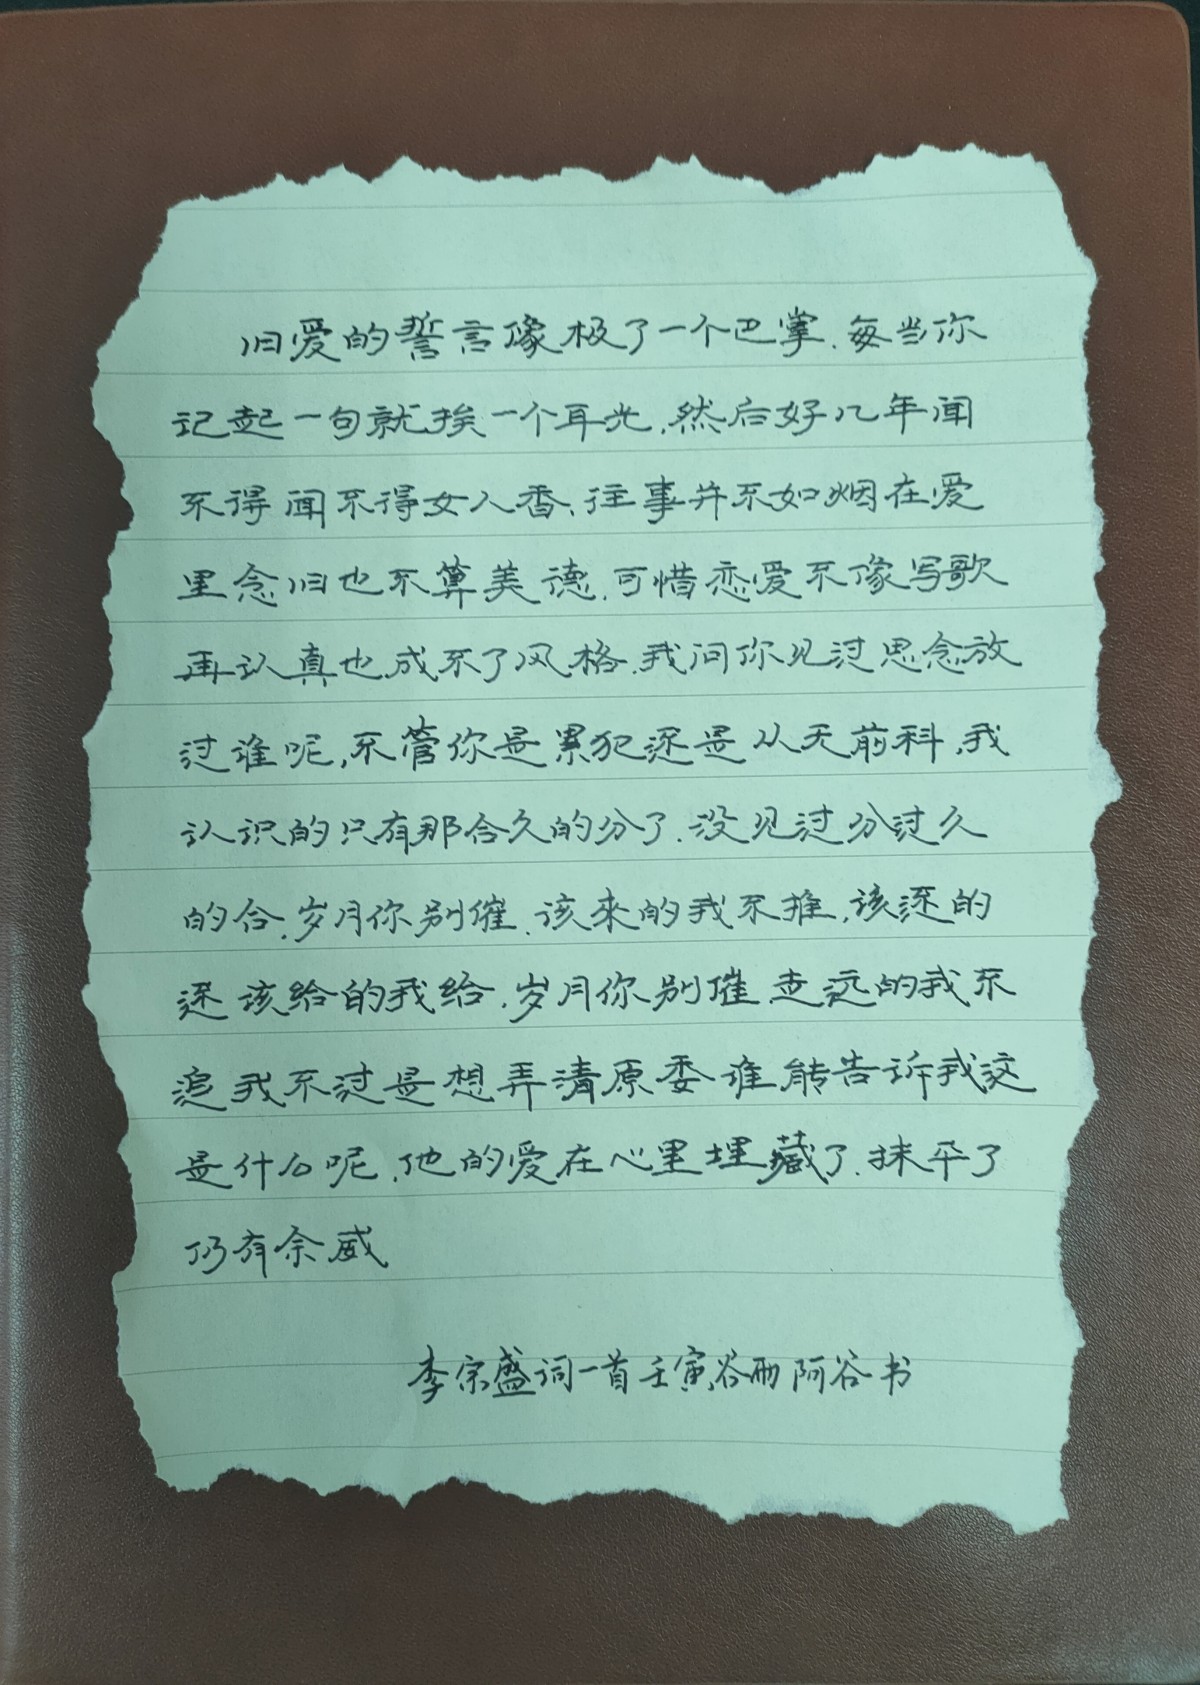 旧爱的誓言像极了一个巴掌.每当你
记起一句就挨一个耳光,然后好几年闻
不得闻不得女人香、往事并不如烟在爱
里念旧也不算美德.可惜恋爱不像写歌
再认真也成不了风格.我问你见过思念放
过谁呢,不管你是累犯还是从无前科,我
认识的只有那合久的分了.没见过分过久
的合.岁月你别催.该来的我不推,该还的
还该给的我给.岁月你别催走远的我不
追我不过是想弄清原委谁能告诉我这
是什么呢.他的爱在心里埋藏了.抹平了
仍有余威
李宗盛词一首壬寅谷雨阿谷书